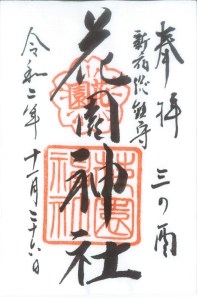 奉拝 三の酉
新宿総鎮守
花園神社
花園神社
令和二年十一月二十六日